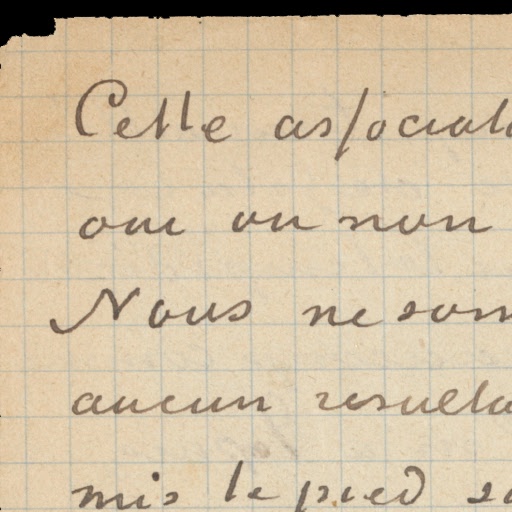 Cette associat
oui ou non
Nous ne som
aucun resulta
mis le pied sa